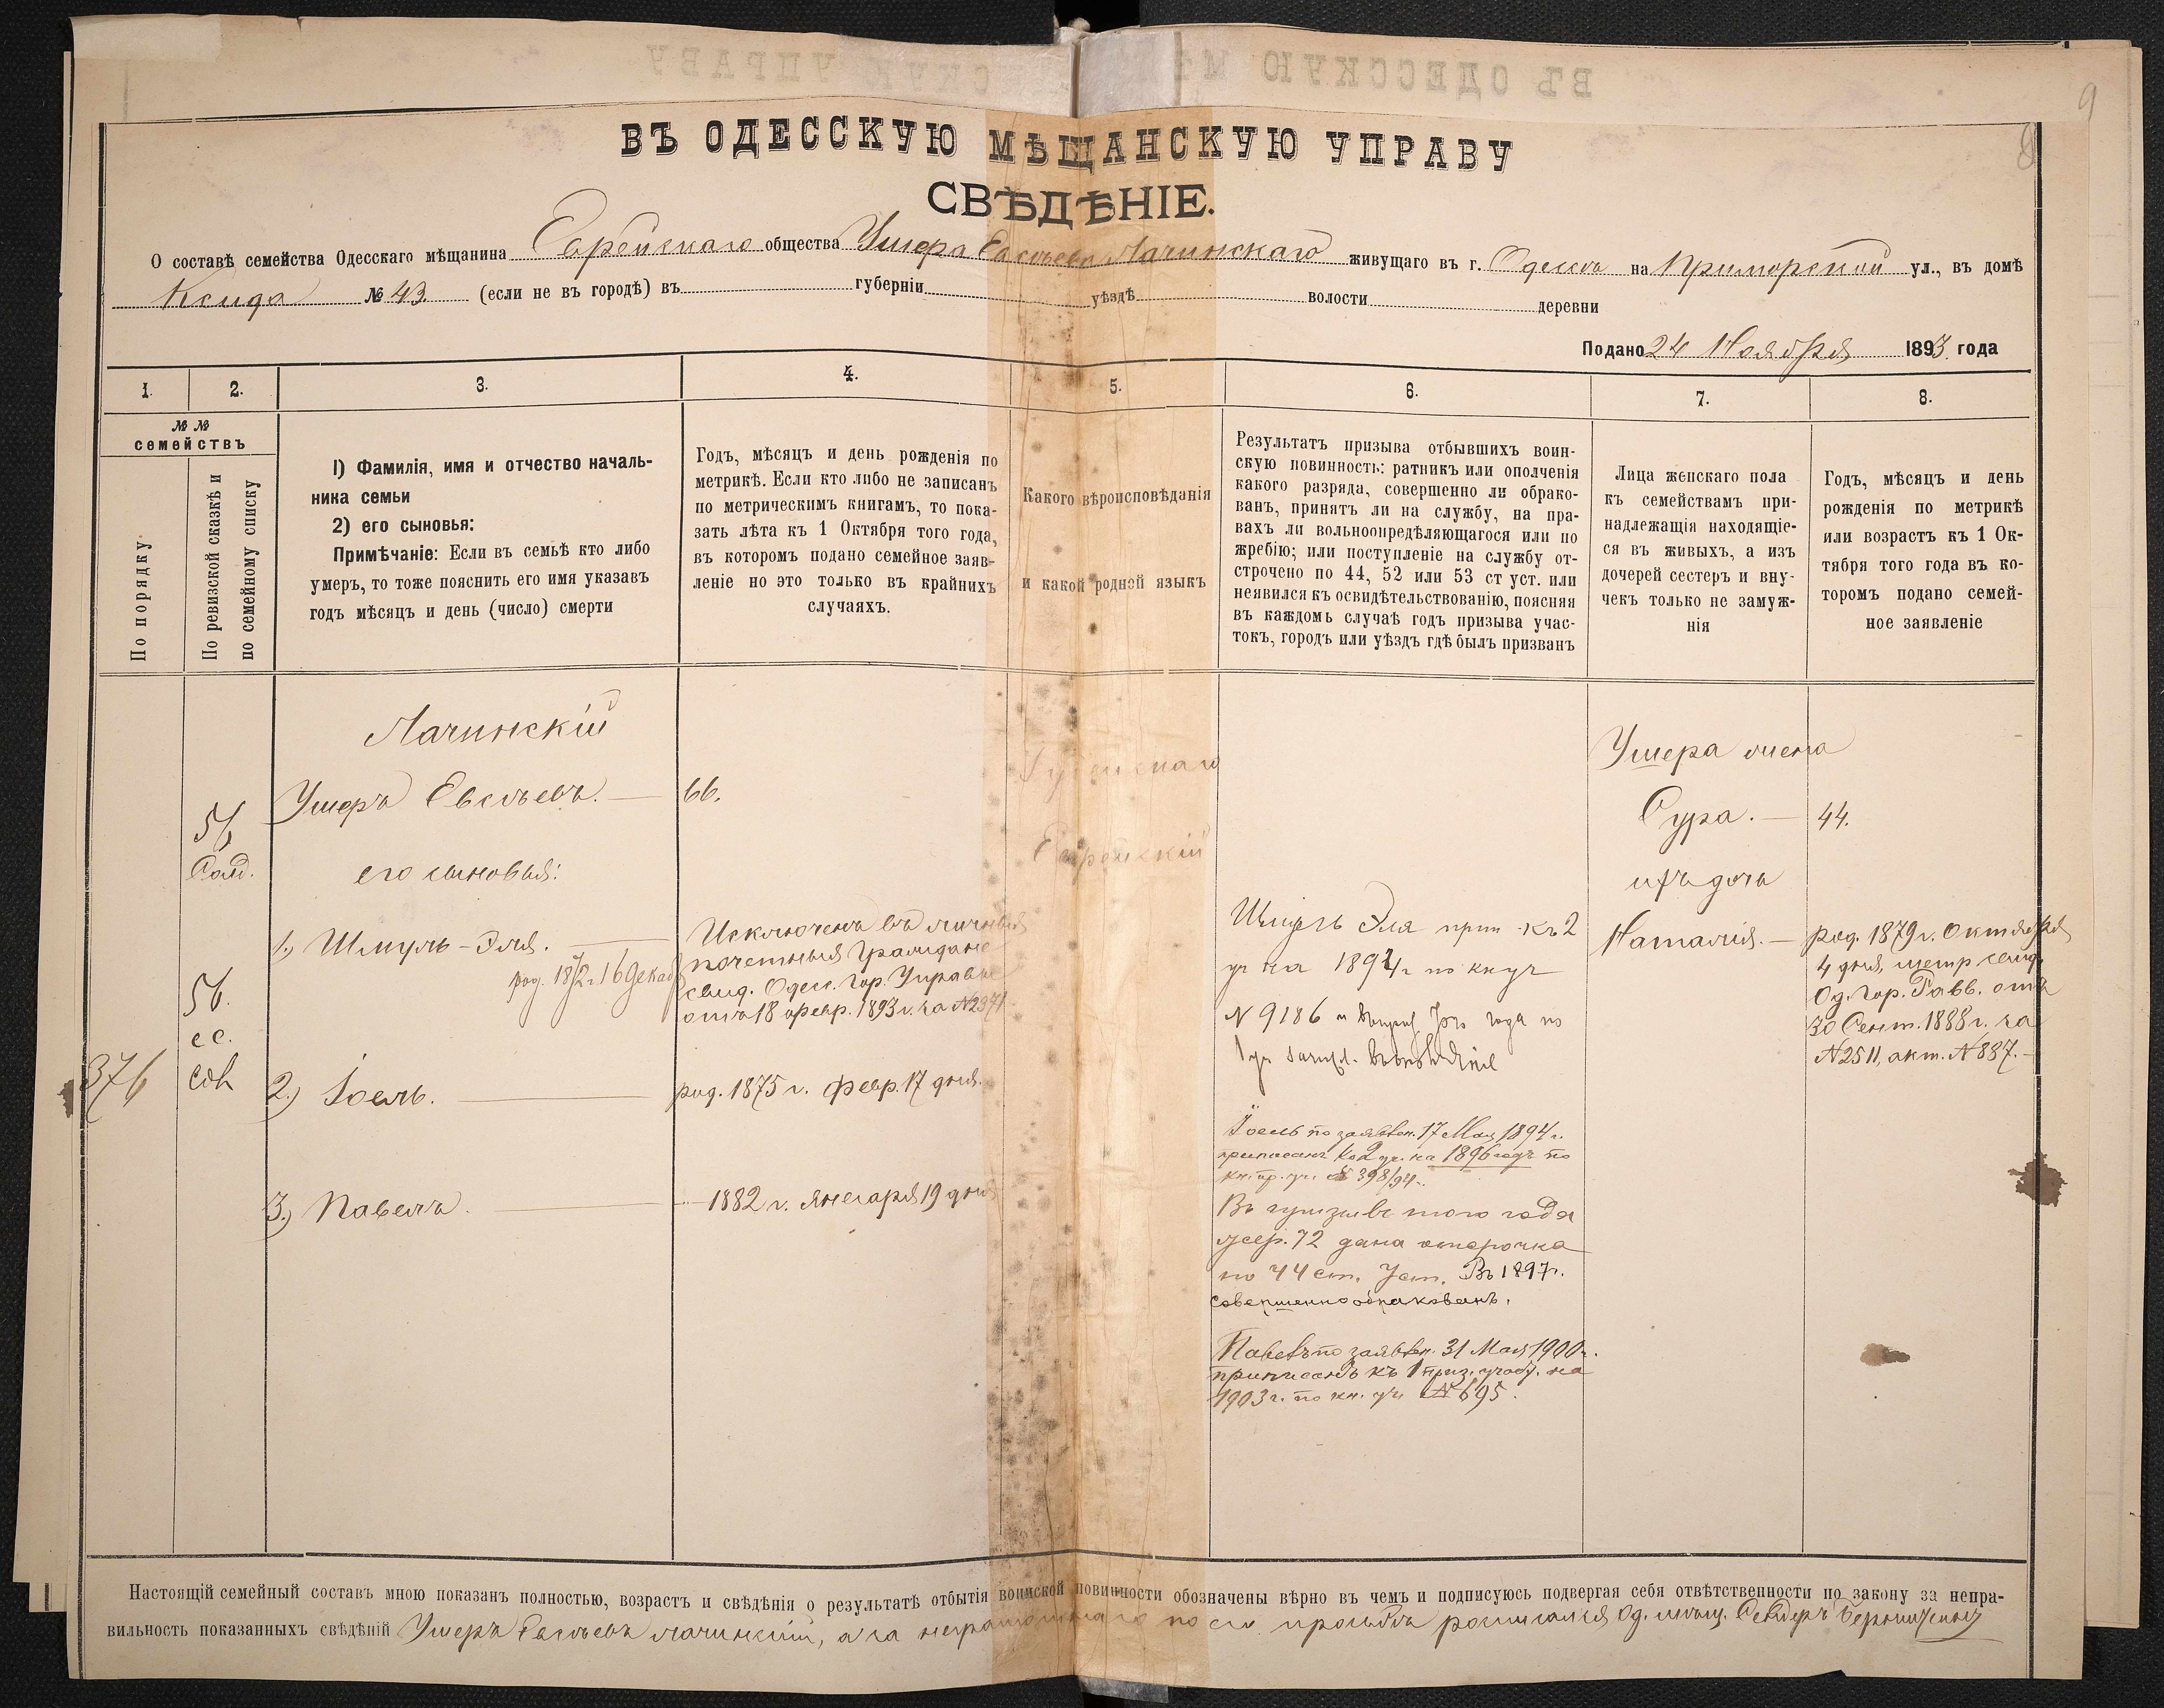 ВЪ ОДЕССКУЮ МѢЩАНСКУЮ УПРАВУ
СВѢДѢНІЕ.
О составѣ семейства Одесскаго мѣщанина Еврейскаго общества Ушера Евсѣева Лачинскаго живущаго въ г. Одессѣ на Приморской ул., въ домѣ
№ 43 (если не въ городѣ) въ губерніи уѣздѣ волости деревни
Подано 24 Ноября 1893 года
1. 2. 3. 4. 5. 6. 7. 8.
№ №
семействъ
По порядку
По ревизской сказкѣ и
по семейному списку
1) Фамилія, имя и отчество началь-
ника семьи
2) его сыновья:
Примѣчаніе: Если въ семьѣ кто либо
умеръ, то тоже пояснить его имя указавъ
годъ мѣсяцъ и день (число) смерти
Годъ, мѣсяцъ и день рожденія по
метрикѣ. Если кто либо не записанъ
по метрическимъ книгамъ, то пока-
зать лѣта къ 1 Октября того года,
въ которомъ подано семейное заяв-
леніе но это только въ крайнихъ
случаяхъ.
Какого вѣроисповѣданія
и какой родной языкъ
Результатъ призыва отбывшихъ воин-
скую повинность: ратникъ или ополченія
какого разряда, совершенно ли обрако-
ванъ, принятъ ли на службу, на пра-
вахъ ли вольноопредѣляющагося или по
жребію; или поступленіе на службу от-
строчено по 44, 52 или 53 ст уст. или
неявился къ освидѣтельствованію, поясняя
въ каждомъ случаѣ годъ призыва учас-
токъ, городъ или уѣздъ гдѣ былъ призванъ
Лица женскаго пола
къ семействамъ при-
надлежащія находящіе-
ся въ живыхъ, а изъ
дочерей сестеръ и вну-
чекъ только не замуж-
нія
Годъ, мѣсяцъ и день
рожденія по метрикѣ
или возрастъ къ 1 Ок-
тября того года въ ко-
торомъ подано семей-
ное заявленіе
376
56
56.
ес.
Лачинскій
Ушеръ Евсѣевъ. — 66.
его сыновья:
1.) Шмуль-Эля. —
род. 1872 г. 16 Декаб
Исключенъ въ личныя
почетныя Граждане
свид. Одес. Гор. Управы
отъ 18 февр. 1893 г. за №2971
2.) Іоель. — род. 1875 г. февр. 17 дня.
3.) Павелъ. — 1882 г. января 19 дня
Іудейскаго
Еврейскій
Шмуль Эля прип къ 2
уч на 1894 г по кн уч
N 9186 года по
Іоель по заявлен. 17 Мая 1894 г.
приписанъ ко 2 уч. на 1896 годъ по
кн. пр. уч. № 398/94.
Въ призывѣ того года
жер. 72 дана отсрочка
по 44 ст. Уст. Въ 1897 г.
совершенно обракованъ.
Павелъ по заявлен. 31 Мая 1900 г.
приписанъ къ 1 приз. участ. на
1903 г. по кн. уч № 695.
Ушера жена
Сура. — 44.
ихъ дочь
Наталія. — род. 1879 г. Октября
4 дня, метр свид.
Од. Гор. Равв. отъ
30 Сент. 1888 г. за
№2511, акт. №887.
Настоящій семейный составъ мною показанъ полностью, возрастъ и свѣдѣнія о результатѣ отбытія воинской повинности обозначены вѣрно въ чемъ и подписуюсь подвергая себя отвѣтственности по закону за непра-
вильность показанныхъ свѣдѣній Ушеръ Евсѣевъ Лачинскій, а за неграмотнаго по его просьбѣ росписался Од. мѣщ.